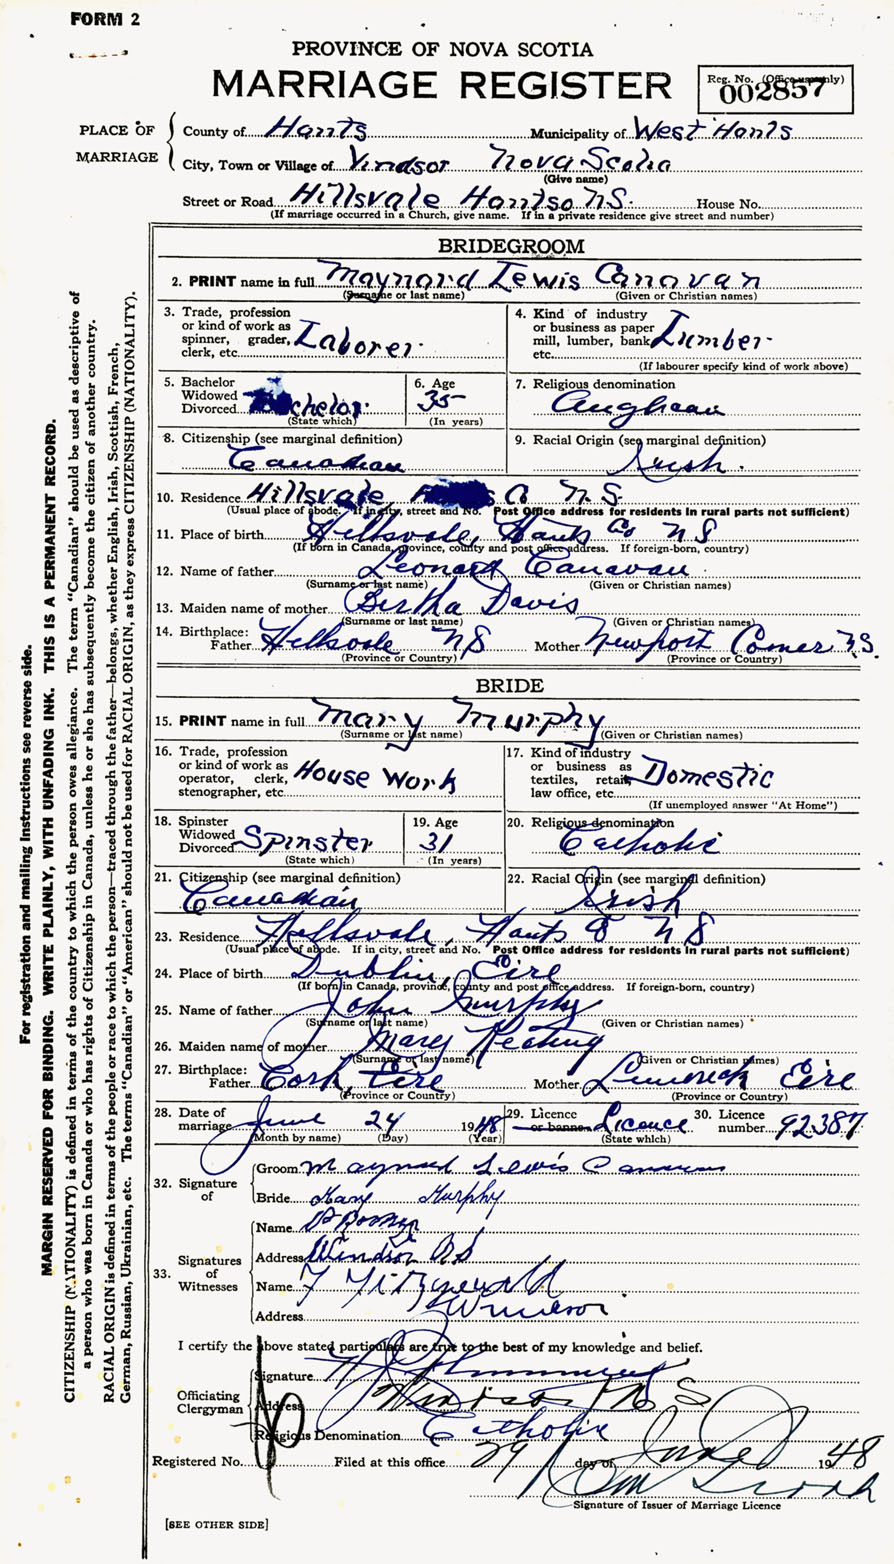 FORM 2
PROVINCE OF NOVA SCOTIA
MARRIAGE REGISTER
Reg. No. (Office use only)
002857
PLACE OF MARRIAGE
County of Hants Municipality of West Hants
City, Town or Village of Windsor Nova Scotia
(Give name)
Street or Road Hillsvale Hants N.S. House No.
(If marriage occurred in a Church, give name. If in a private residence give street and number)
BRIDEGROOM
2. PRINT name in full Maynard Lewis Canavan
(Surname or last name) (Given or Christian names)
3. Trade, profession or kind of work as spinner, grader, clerk, etc. Laborer
4. Kind of industry or business as paper mill, lumber, bank etc. Lumber
(If labourer specify kind of work above)
5. Bachelor Widowed Divorced Bachelor
(State which)
6. Age 35
(In years)
7. Religious denomination
Anglican
8. Citizenship (see marginal definition)
Canadian
9. Racial Origin (see marginal definition)
Irish
10. Residence Hillsvale Co N.S.
(Usual place of abode. If in city, street and No. Post Office address for residents in rural parts not sufficient)
11. Place of birth Hillsvale, Hants Co NS
(If born in Canada, province, county and post office address. If foreign-born, country)
12. Name of father Leonard Canavan
(Surname or last name) (Given or Christian names)
13. Maiden name of mother Bertha Davis
(Surname or last name) (Given or Christian names)
14. Birthplace: Father Hillsvale NS Mother Newport Corner N.S.
(Province or Country) (Province or Country)
BRIDE
15. PRINT name in full Mary Murphy
(Surname or last name) (Given or Christian names)
16. Trade, profession or kind of work as operator, clerk, stenographer, etc. House Work
17. Kind of industry or business as textiles, retail, law office, etc. Domestic
(If unemployed answer "At Home")
18. Spinster Widowed Divorced Spinster
(State which)
19. Age 31
(In years)
20. Religious denomination
Catholic
21. Citizenship (see marginal definition)
Canadian
22. Racial Origin (see marginal definition)
Irish
23. Residence Hillsvale, Hants Co NS
(Usual place of abode. If in city, street and No. Post Office address for residents in rural parts not sufficient)
24. Place of birth Dublin, Eire
(If born in Canada, province, county and post office address. If foreign-born, country)
25. Name of father John Murphy
(Surname or last name) (Given or Christian names)
26. Maiden name of mother Mary Keating
(Surname or last name) (Given or Christian names)
27. Birthplace: Father Cork, Eire Mother Limerick Eire
(Province or Country) (Province or Country)
28. Date of marriage June 24 1948
(Month by name) (Day) (Year)
29. Licence or banns Licence
(State which)
30. Licence number 92387
32. Signature of
Groom Maynard Lewis Canavan
Bride Mary Murphy
33. Signatures of Witnesses
Name
Address Windsor NS
Name
Address Windsor
I certify the above stated particulars are true to the best of my knowledge and belief.
Officiating Clergyman
Signature
Address Windsor N S
Religious Denomination Catholic
Registered No. Filed at this office 29 day of June 1948
Signature of Issuer of Marriage Licence
[SEE OTHER SIDE]
For registration and mailing instructions see reverse side.
MARGIN RESERVED FOR BINDING. WRITE PLAINLY, WITH UNFADING INK. THIS IS A PERMANENT RECORD.
CITIZENSHIP (NATIONALITY) is defined in terms of the country to which the person owes allegiance. The term "Canadian" should be used as descriptive of
a person who was born in Canada or who has rights of Citizenship in Canada, unless he or she has subsequently become the citizen of another country.
RACIAL ORIGIN is defined in terms of the people or race to which the person—traced through the father—belongs, whether English, Irish, Scottish, French,
German, Russian, Ukrainian, etc. The terms "Canadian" or "American" should not be used for RACIAL ORIGIN, as they express CITIZENSHIP (NATIONALITY).